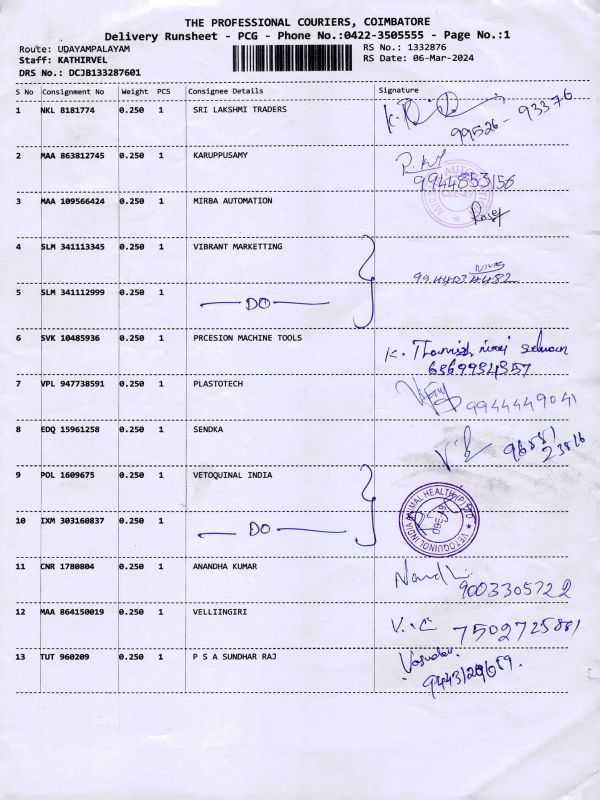 THE PROFESSIONAL COURIERS, COIMBATORE
Delivery Runsheet - PCG - Phone No.:0422-3505555 - Page No.:1
Route: UDAYAMPALAYAM RS No.: 1332876
Staff: KATHIRVEL RS Date: 06-Mar-2024
DRS No.: DCJB133287601
S No Consignment No Weight PCS Consignee Details Signature
1 NKL 8181774 0.250 1 SRI LAKSHMI TRADERS 99526 - 93376
2 MAA 863812745 0.250 1 KARUPPUSAMY 9944853156
3 MAA 109566424 0.250 1 MIRBA AUTOMATION
4 SLM 341113345 0.250 1 VIBRANT MARKETTING
5 SLM 341112999 0.250 1 DO
6 SVK 10485936 0.250 1 PRCESION MACHINE TOOLS
6369934357
7 VPL 947738591 0.250 1 PLASTOTECH 9944449041
8 EDQ 15961258 0.250 1 SENDKA 96881
23816
9 POL 1609675 0.250 1 VETOQUINAL INDIA
VETOQUINOL INDIA ANIMAL HEALTH (P) LTD
10 IXM 303160837 0.250 1 DO
11 CNR 1780804 0.250 1 ANANDHA KUMAR 9003305722
12 MAA 864150019 0.250 1 VELLIINGIRI 7502725881
13 TUT 960209 0.250 1 P S A SUNDHAR RAJ